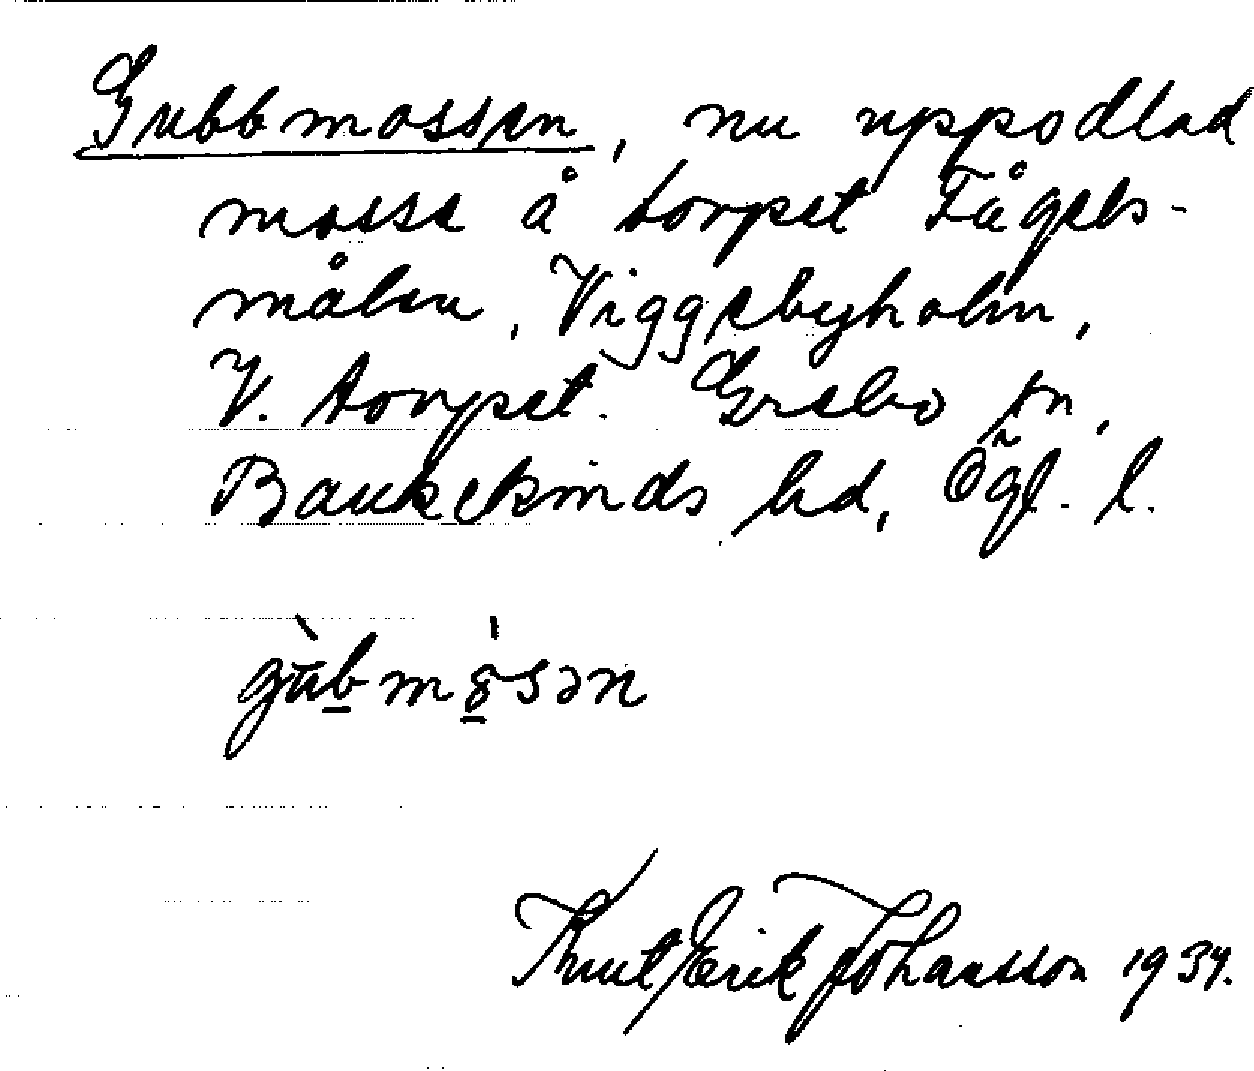 Gubbmossen, nu uppodlad
mosse å torpet Fågels-
målen, Viggebyholm,
V. torpet. Grebo sn,
Bankekinds hd, Ögl. l.
gùbmo̱sən
Knut Erik Johansson 1934.